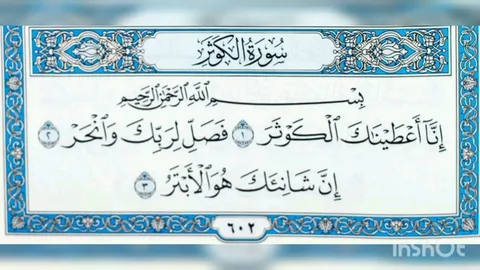 سُورَةُ الكَوْثَرِ
بِسْمِ ٱللَّهِ ٱلرَّحْمَٰنِ ٱلرَّحِيمِ
إِنَّآ أَعْطَيْنَٰكَ ٱلْكَوْثَرَ ١ فَصَلِّ لِرَبِّكَ وَٱنْحَرْ ٢
إِنَّ شَانِئَكَ هُوَ ٱلْأَبْتَرُ ٣
٦٠٢
INSHOT